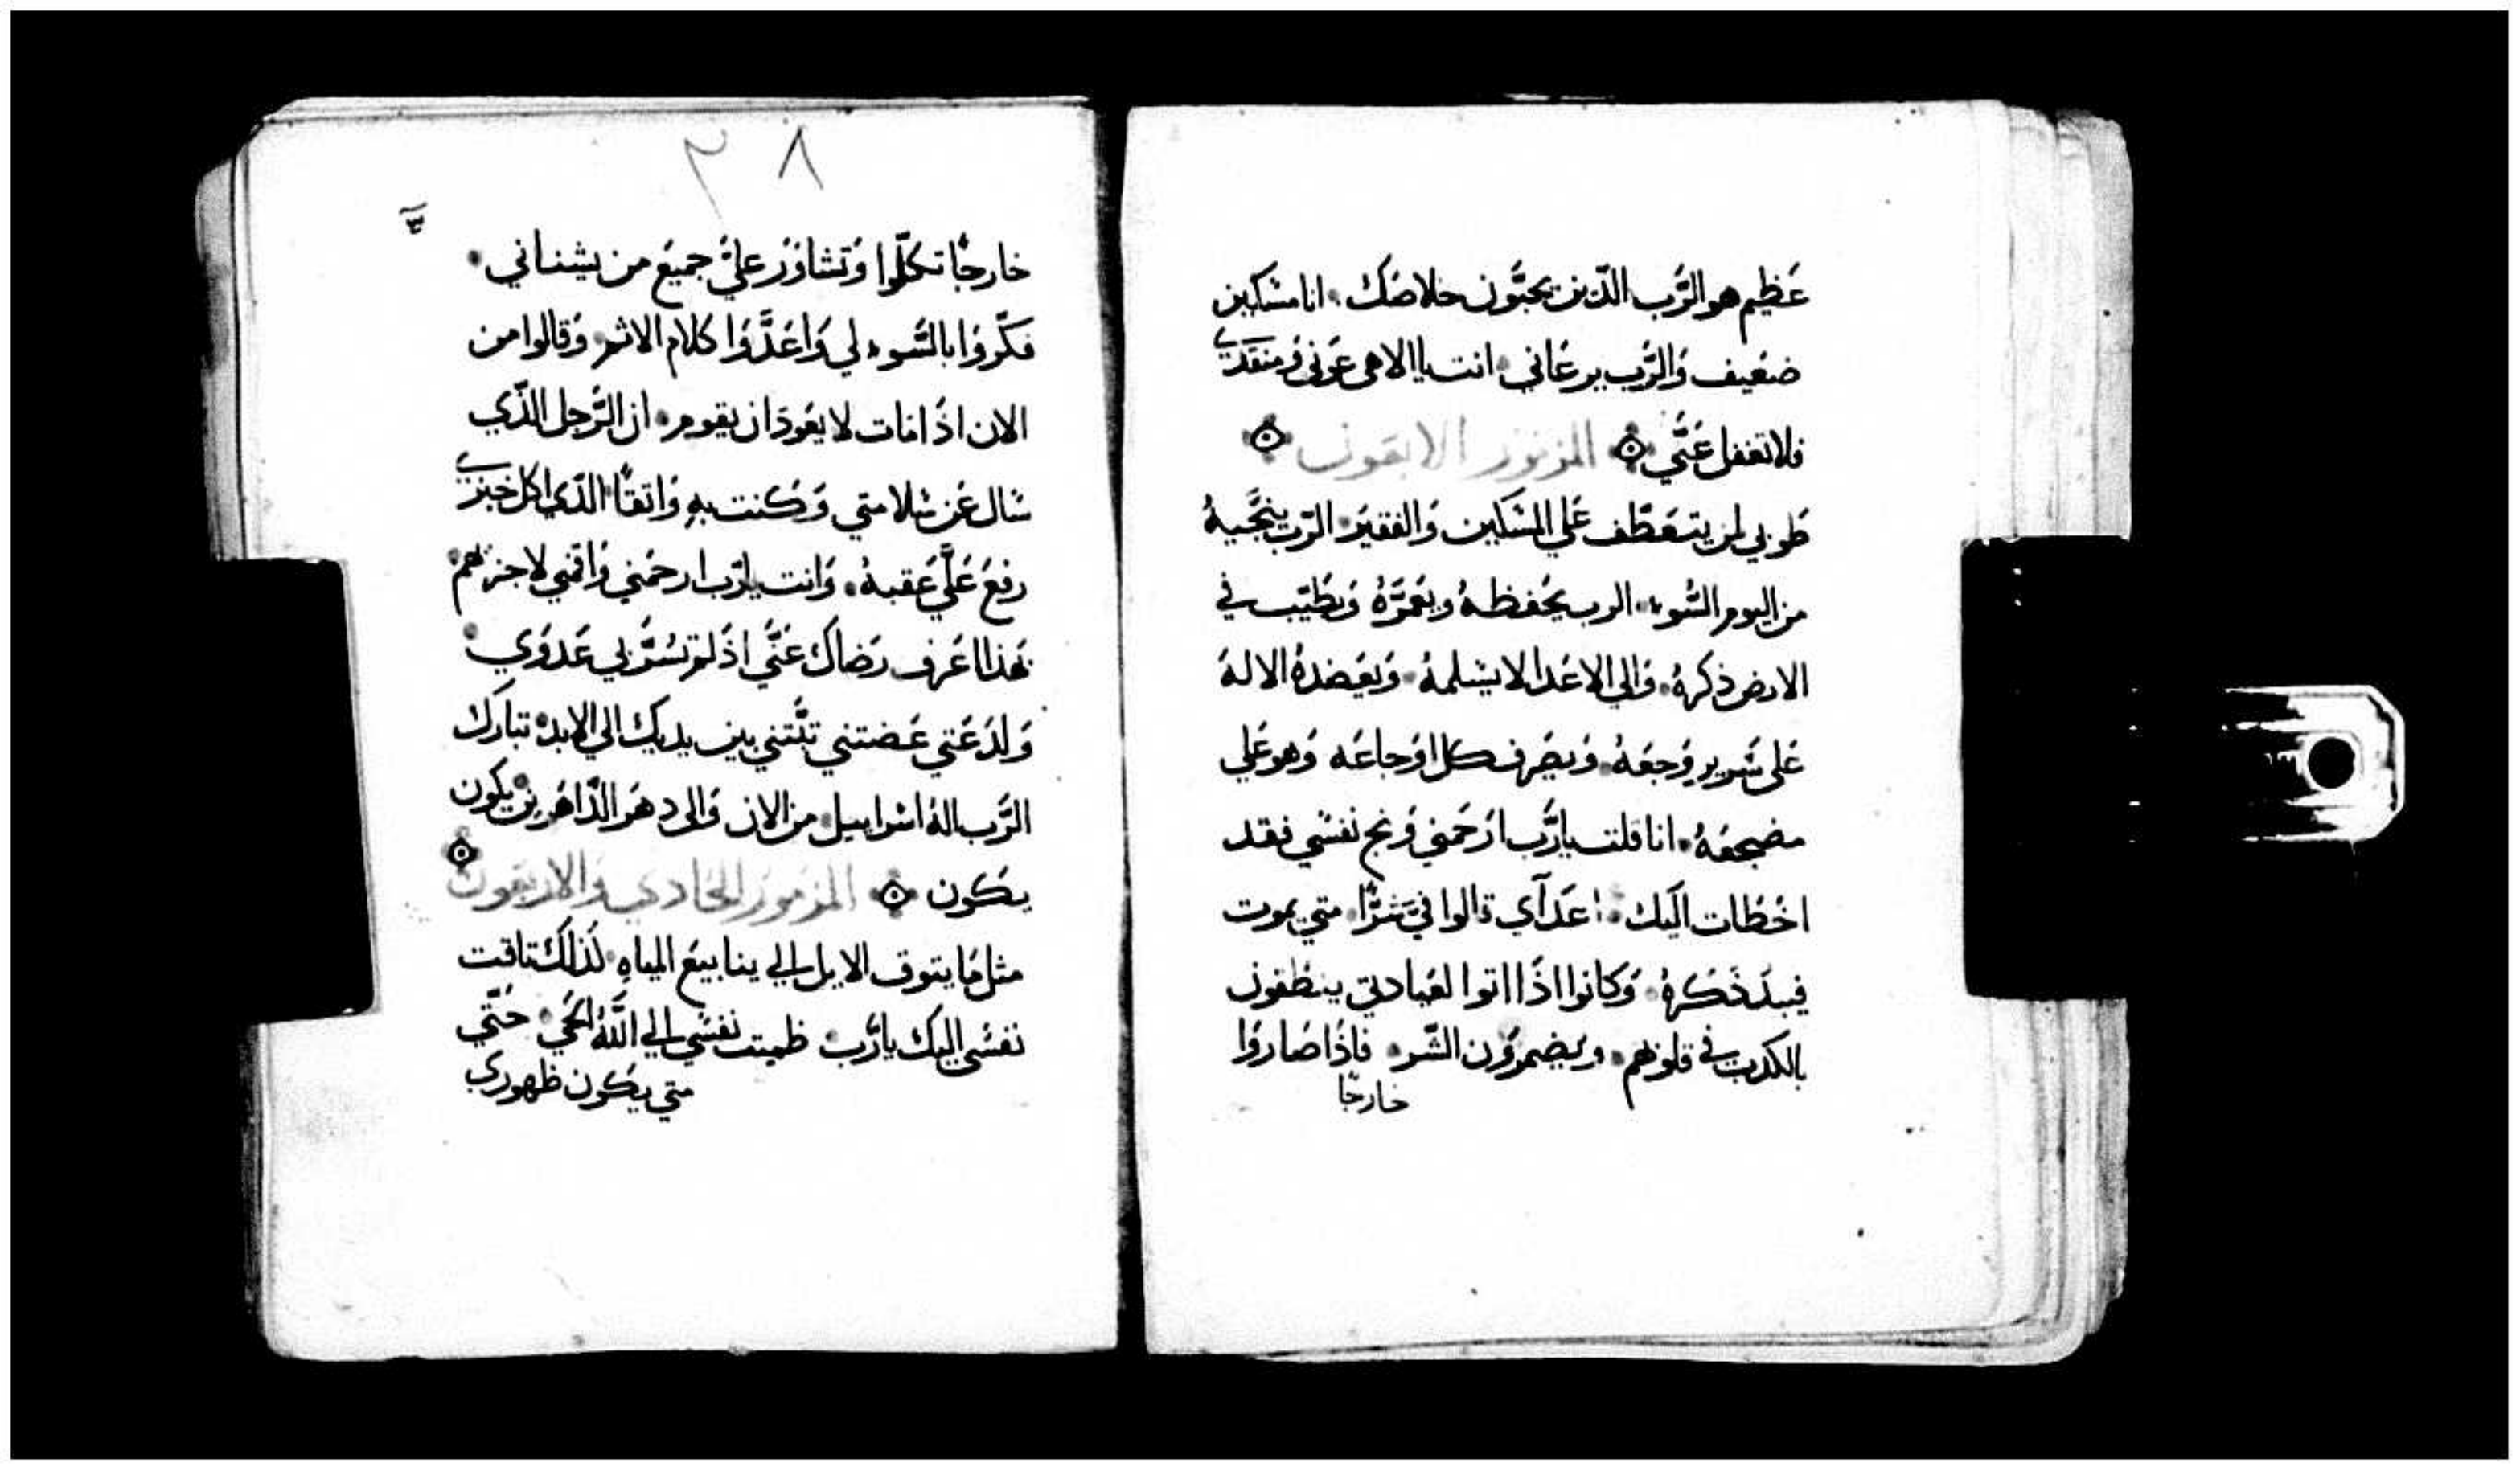 عَظيم هو الرَّب الدّين يحبّون خلاصَك. انا مسَكين
ضعَيف وَالرَّب يرعَاني. انت ياالاهى عَونى وَمنقدَي
فلا تغفل عَنّي ۞ المزمور الاربعَون ۞
طَوبي لمن يتعَطّف عَلي المسَكين وَالفقيَر. الرّب ينجَّيهُ
من اليوم السُّوء. الرب يحَفظهُ ويعَمرَّهُ وَيطَيّب في
الارض ذكرهُ. وَالي الاعَدا لا يسَلمهُ. وَيعَضدهُ الالهَ
عَلى سَرير وَجعَهُ. وَيصَرف كل اوَجاعَه وَهو عَلي
مضجعَهُ. انا قلت يارَّب ارَحمَني وَنج نفسَي فقد
اخطَات اليَك. اعَدآي قالوا فيَّ شرَّا. متي يموت
فيبدَ ذَكرهُ. وَكانوا اذَا اتوا لعَيادتي ينطَفون
بالكدب في قلوبهم. ويضمروَن الشّر. فاذَا صَاروَا
خارجًا
٣٨
خارجًا تكلّوا وَتشاوَرَ عليَّ جميعَ من يشناني.
فكّروَا بالسَّوء لي وَاعَدَّوَا كلام الاثم. وَقالوا من
الان اذَا مَات لا يعَودَ ان يقوم. ان الرَّجل الذّي
سَال عَن سَلامتي وَكنت بهِ وَاتقًا الذّي اكل خبزَي
رفعَ عَلَّي عَقبهُ. وَانت يارَّب ارحمَني وَاقمني لاجزيهم
بهذا اعَرف رضَاك عَنَّي اذَ لم يسُرَّ بي عَدوَي
وَلدَعَتي عَضتني تبَّتني بين يديك الي الابد. تبارَك
الرَّب الهُ اسَراييل. من الان وَالى دهرَ الدّاهَرين يكون
يكَون ۞ المزمورَ الحَادي وَالاربعَون ۞
مثل مَا يتوق الايل الي ينابيعَ المياهِ. لذَلك تاقت
نفسَي اليك يارَّب. ظميت نفسَي الي اللَّه الحَي. حتَّي
متي يكَون ظهوري